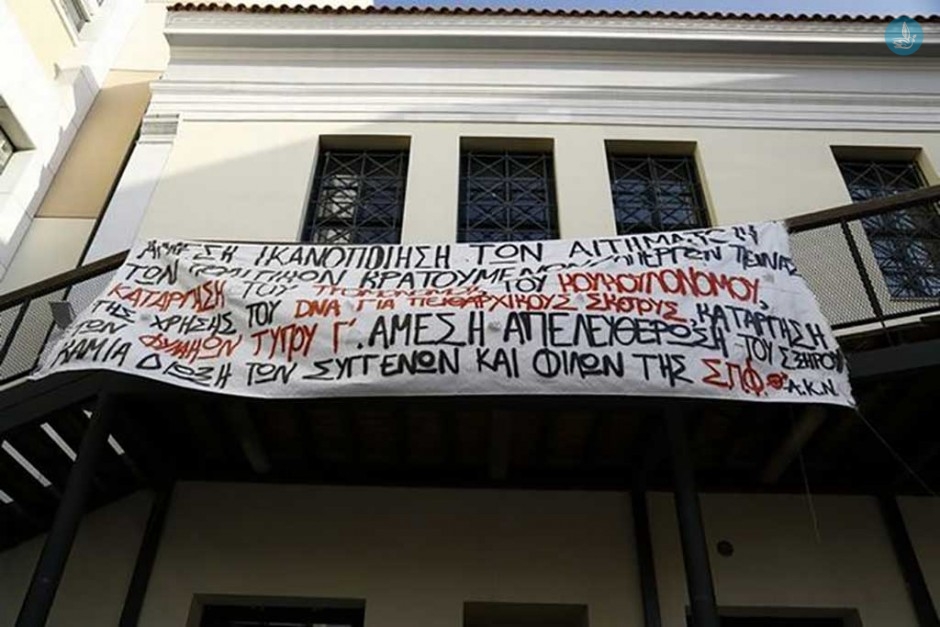 ΑΜΕΣΗ ΙΚΑΝΟΠΟΙΗΣΗ ΤΩΝ ΑΙΤΗΜΑΤΩΝ
ΤΩΝ ΠΟΛΙΤΙΚΩΝ ΚΡΑΤΟΥΜΕΝΩΝ ΑΠΕΡΓΩΝ ΠΕΙΝΑΣ
ΚΑΤΑΡΓΗΣΗ ΤΟΥ ΤΟΥ ΚΟΥΚΟΥΛΟΝΟΜΟΥ,
ΤΗΣ ΧΡΗΣΗΣ ΤΟΥ DNA ΓΙΑ ΠΕΙΘΑΡΧΙΚΟΥΣ ΣΚΟΠΟΥΣ, ΚΑΤΑΡΓΗΣΗ
ΤΩΝ ΦΥΛΑΚΩΝ ΤΥΠΟΥ Γ'. ΑΜΕΣΗ ΑΠΕΛΕΥΘΕΡΩΣΗ ΤΟΥ Σ.ΞΗΡΟΥ
ΚΑΜΙΑ ΔΙΩΞΗ ΤΩΝ ΣΥΓΓΕΝΩΝ ΚΑΙ ΦΙΛΩΝ ΤΗΣ ΣΠΦ Α.Κ.Ν